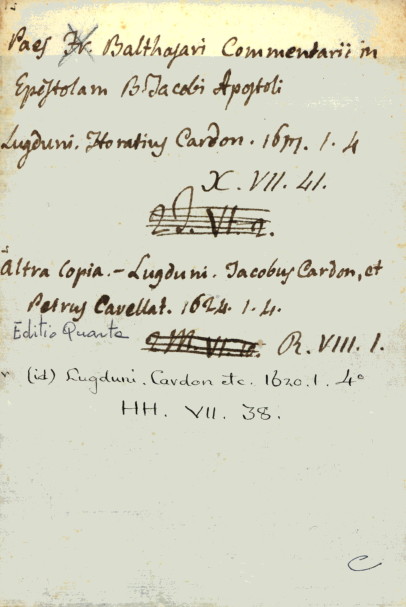 Paes Fr. Balthasari Commentarii in
Epistolam B. Jacobi Apostoli
Lugduni. Horatius Cardon. 1617. 1. 4
X. VII. 41.
2 J. VI. 2.
Altra Copia. - Lugduni. Jacobus Cardon, et
Petrus Cavellat. 1624. 1. 4.
Editio Quarta
R. VIII. 1.
(id) Lugduni. Cardon etc. 1620. 1. 4º
HH. VII. 38.
C